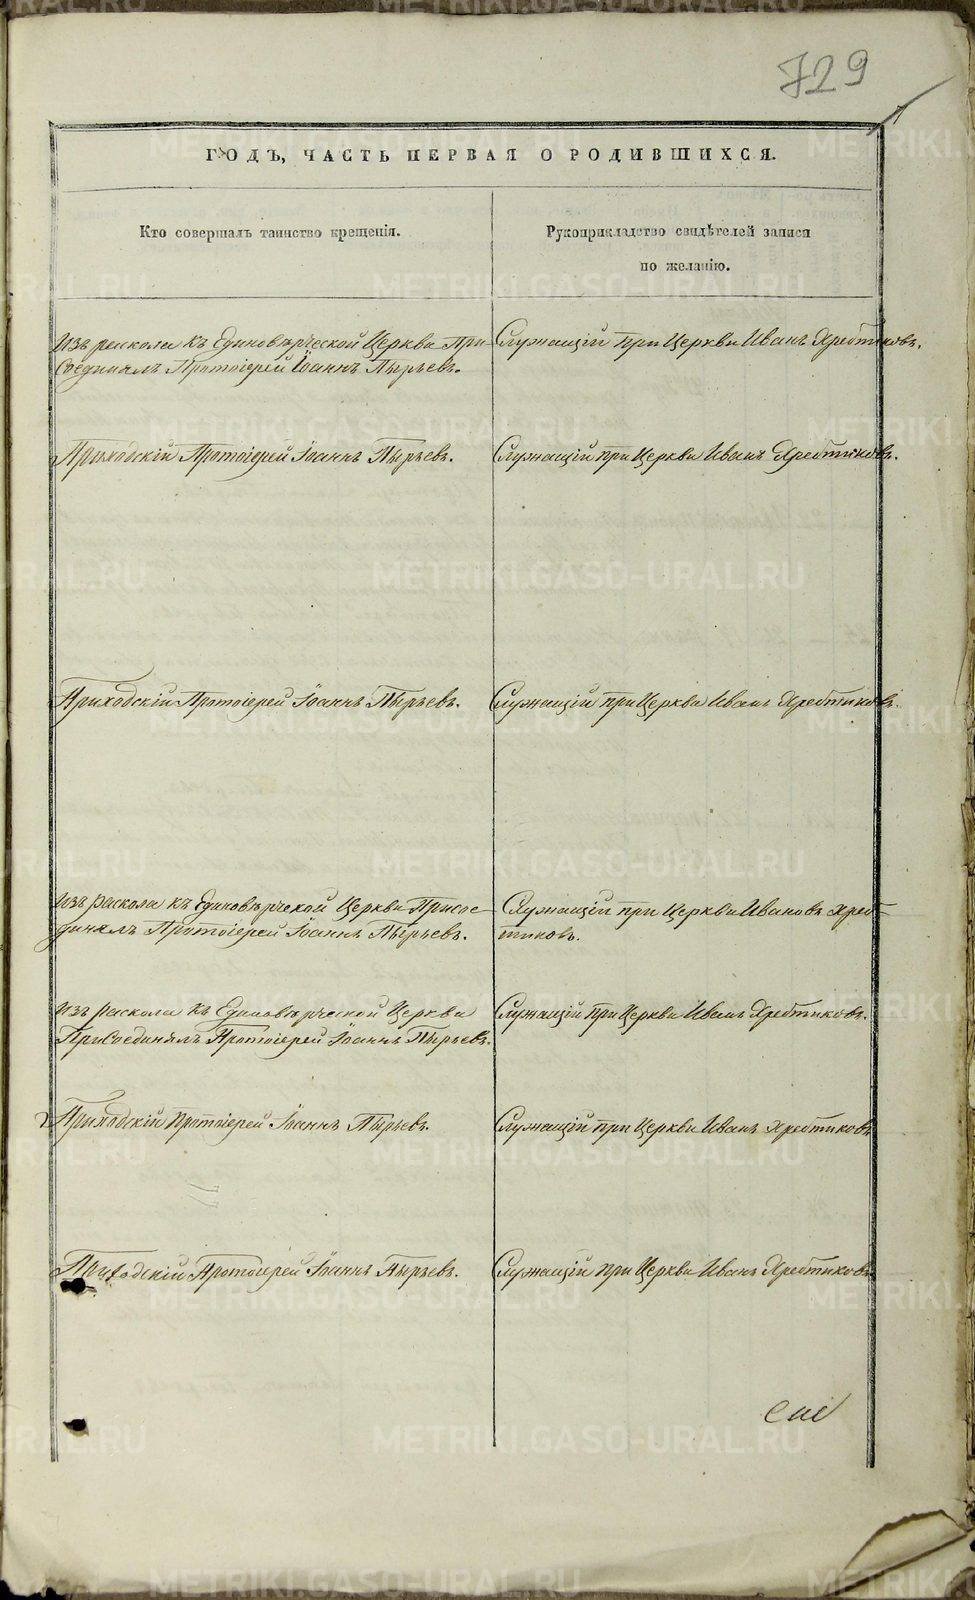 729
ГОДЪ, ЧАСТЬ ПЕРВАЯ О РОДИВШИХСЯ.
Кто совершалъ таинство крещенія.
Рукоприкладство свидѣтелей записи
по желанію.
Изъ раскола къ Единовѣрческой Церкви При-
соединялъ Протоіерей Іоаннъ Пырьевъ.
Служащій при Церкви Иванъ Хребтиковъ.
Приходскій Протоіерей Іоаннъ Пырьевъ.
Служащій при Церкви Иванъ Хребтиковъ.
Приходскій Протоіерей Іоаннъ Пырьевъ.
Служащій при Церкви Иванъ Хребтиковъ.
Изъ раскола къ Единовѣрческой Церкви Присое-
динялъ Протоіерей Іоаннъ Пырьевъ.
Служащій при Церкви Ивановъ Хреб-
тиковъ.
Изъ раскола къ Единовѣрческой Церкви
Присоединялъ Протоіерей Іоаннъ Пырьевъ.
Служащій при Церкви Иванъ Хребтиковъ.
Приходскій Протоіерей Іоаннъ Пырьевъ.
Служащій при Церкви Иванъ Хребтиковъ
Приходскій Протоіерей Іоаннъ Пырьевъ.
Служащій при Церкви Иванъ Хребтиковъ
METRIKI.GASO-URAL.RU